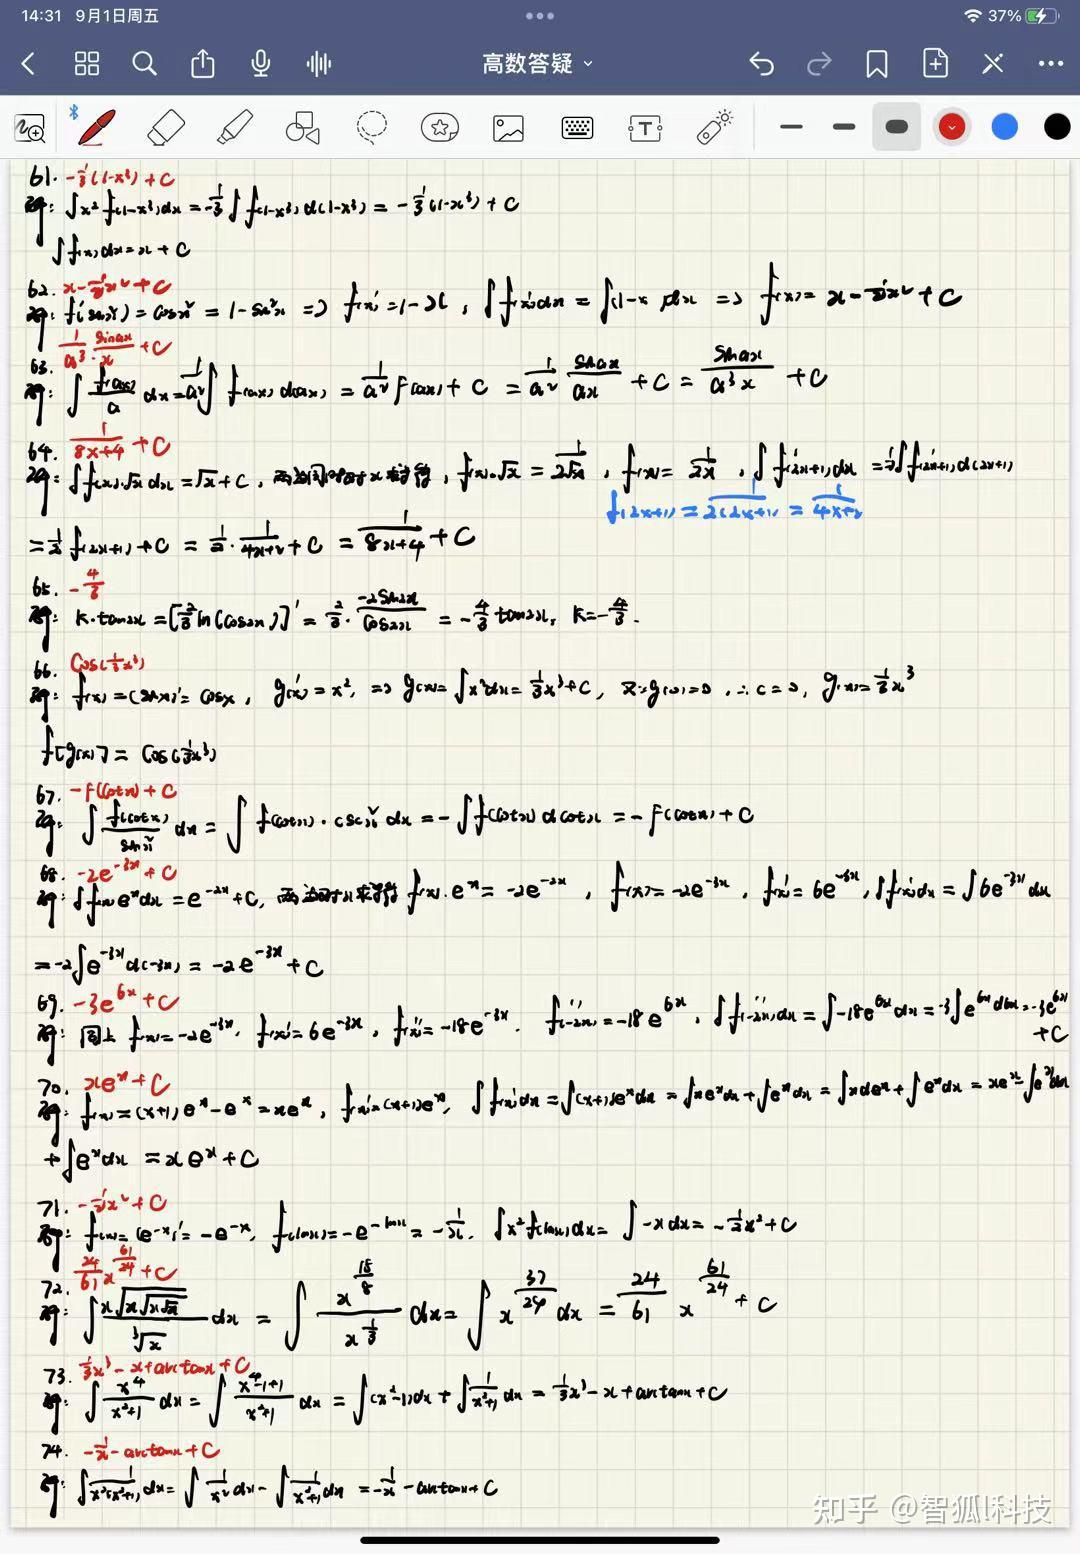 14:31 9月1日周五
37%
高数答疑
61. -1/3(1-x³)+C
解: ∫x²f(1-x³)dx = -1/3∫f(1-x³)d(1-x³) = -1/3(1-x³)+C
∫f(x)dx=x+C
62. x-1/2x²+C
解: f'(sin²x)=cos²x=1-sin²x => f'(x)=1-x, ∫f'(x)dx=∫(1-x)dx => f(x)=x-1/2x²+C
63. 1/a³·sinax/x+C
解: ∫f(ax)/a dx=1/a²∫f(ax)d(ax)=1/a²F(ax)+C=1/a² sinax/ax+C=sinax/a³x+C
64. 1/(8x+4)+C
解: ∫f(x)·√x dx=√x+C, 两边同时对x求导得, f(x)·√x=1/2√x, f(x)=1/2x, ∫f'(2x+1)dx=1/2∫f'(2x+1)d(2x+1)
f(2x+1)=1/2(2x+1)=1/(4x+2)
=1/2f(2x+1)+C=1/2·1/(4x+2)+C=1/(8x+4)+C
65. -4/3
解: k·tan2x=[2/3ln(cos2x)]'=2/3·-2sin2x/cos2x=-4/3tan2x, k=-4/3.
66. cos(1/3x³)
解: f(x)=(sinx)'=cosx, g'(x)=x², => g(x)=∫x²dx=1/3x³+C, 又∵g(0)=0, ∴c=0, g(x)=1/3x³
f[g(x)]=cos(1/3x³)
67. -F(cotx)+C
解: ∫f(cotx)/sin²x dx=∫f(cotx)·csc²x dx=-∫f(cotx)dcotx=-F(cotx)+C
68. -2e^-3x+C
解: ∫f(x)e^x dx=e^-2x+C, 两边同时对x求导得 f(x)·e^x=-2e^-2x, f(x)=-2e^-3x, f'(x)=6e^-3x, ∫f'(x)dx=∫6e^-3x dx
=-2∫e^-3x d(-3x)=-2e^-3x+C
69. -3e^6x+C
解: 同上 f(x)=-2e^-3x, f'(x)=6e^-3x, f''(x)=-18e^-3x. f''(-2x)=-18e^6x, ∫f''(-2x)dx=∫-18e^6x dx=-3∫e^6x d6x=-3e^6x
+C
70. xe^x+C
解: f(x)=(x+1)e^x-e^x=xe^x, f'(x)=(x+1)e^x, ∫f'(x)dx=∫(x+1)e^x dx=∫xe^x dx+∫e^x dx=∫xde^x+∫e^x dx=xe^x-∫e^x dx
+∫e^x dx=xe^x+C
71. -1/2x²+C
解: f(x)=(e^-x)'=-e^-x, f(lnx)=-e^-lnx=-1/x, ∫x²f(lnx)dx=∫-xdx=-1/2x²+C
72. 24/61x^61/24+C
解: ∫x√x√x√x/³√x dx=∫x^15/8/x^1/3 dx=∫x^37/24 dx=24/61 x^61/24+C
73. 1/3x³-x+arctanx+C
解: ∫x⁴/(x²+1) dx=∫(x⁴-1+1)/(x²+1) dx=∫(x²-1)dx+∫1/(x²+1) dx=1/3x³-x+arctanx+C
74. -1/x-arctanx+C
解: ∫1/x²(x²+1) dx=∫1/x² dx-∫1/(x²+1) dx=-1/x-arctanx+C
知乎 @智狐l科技